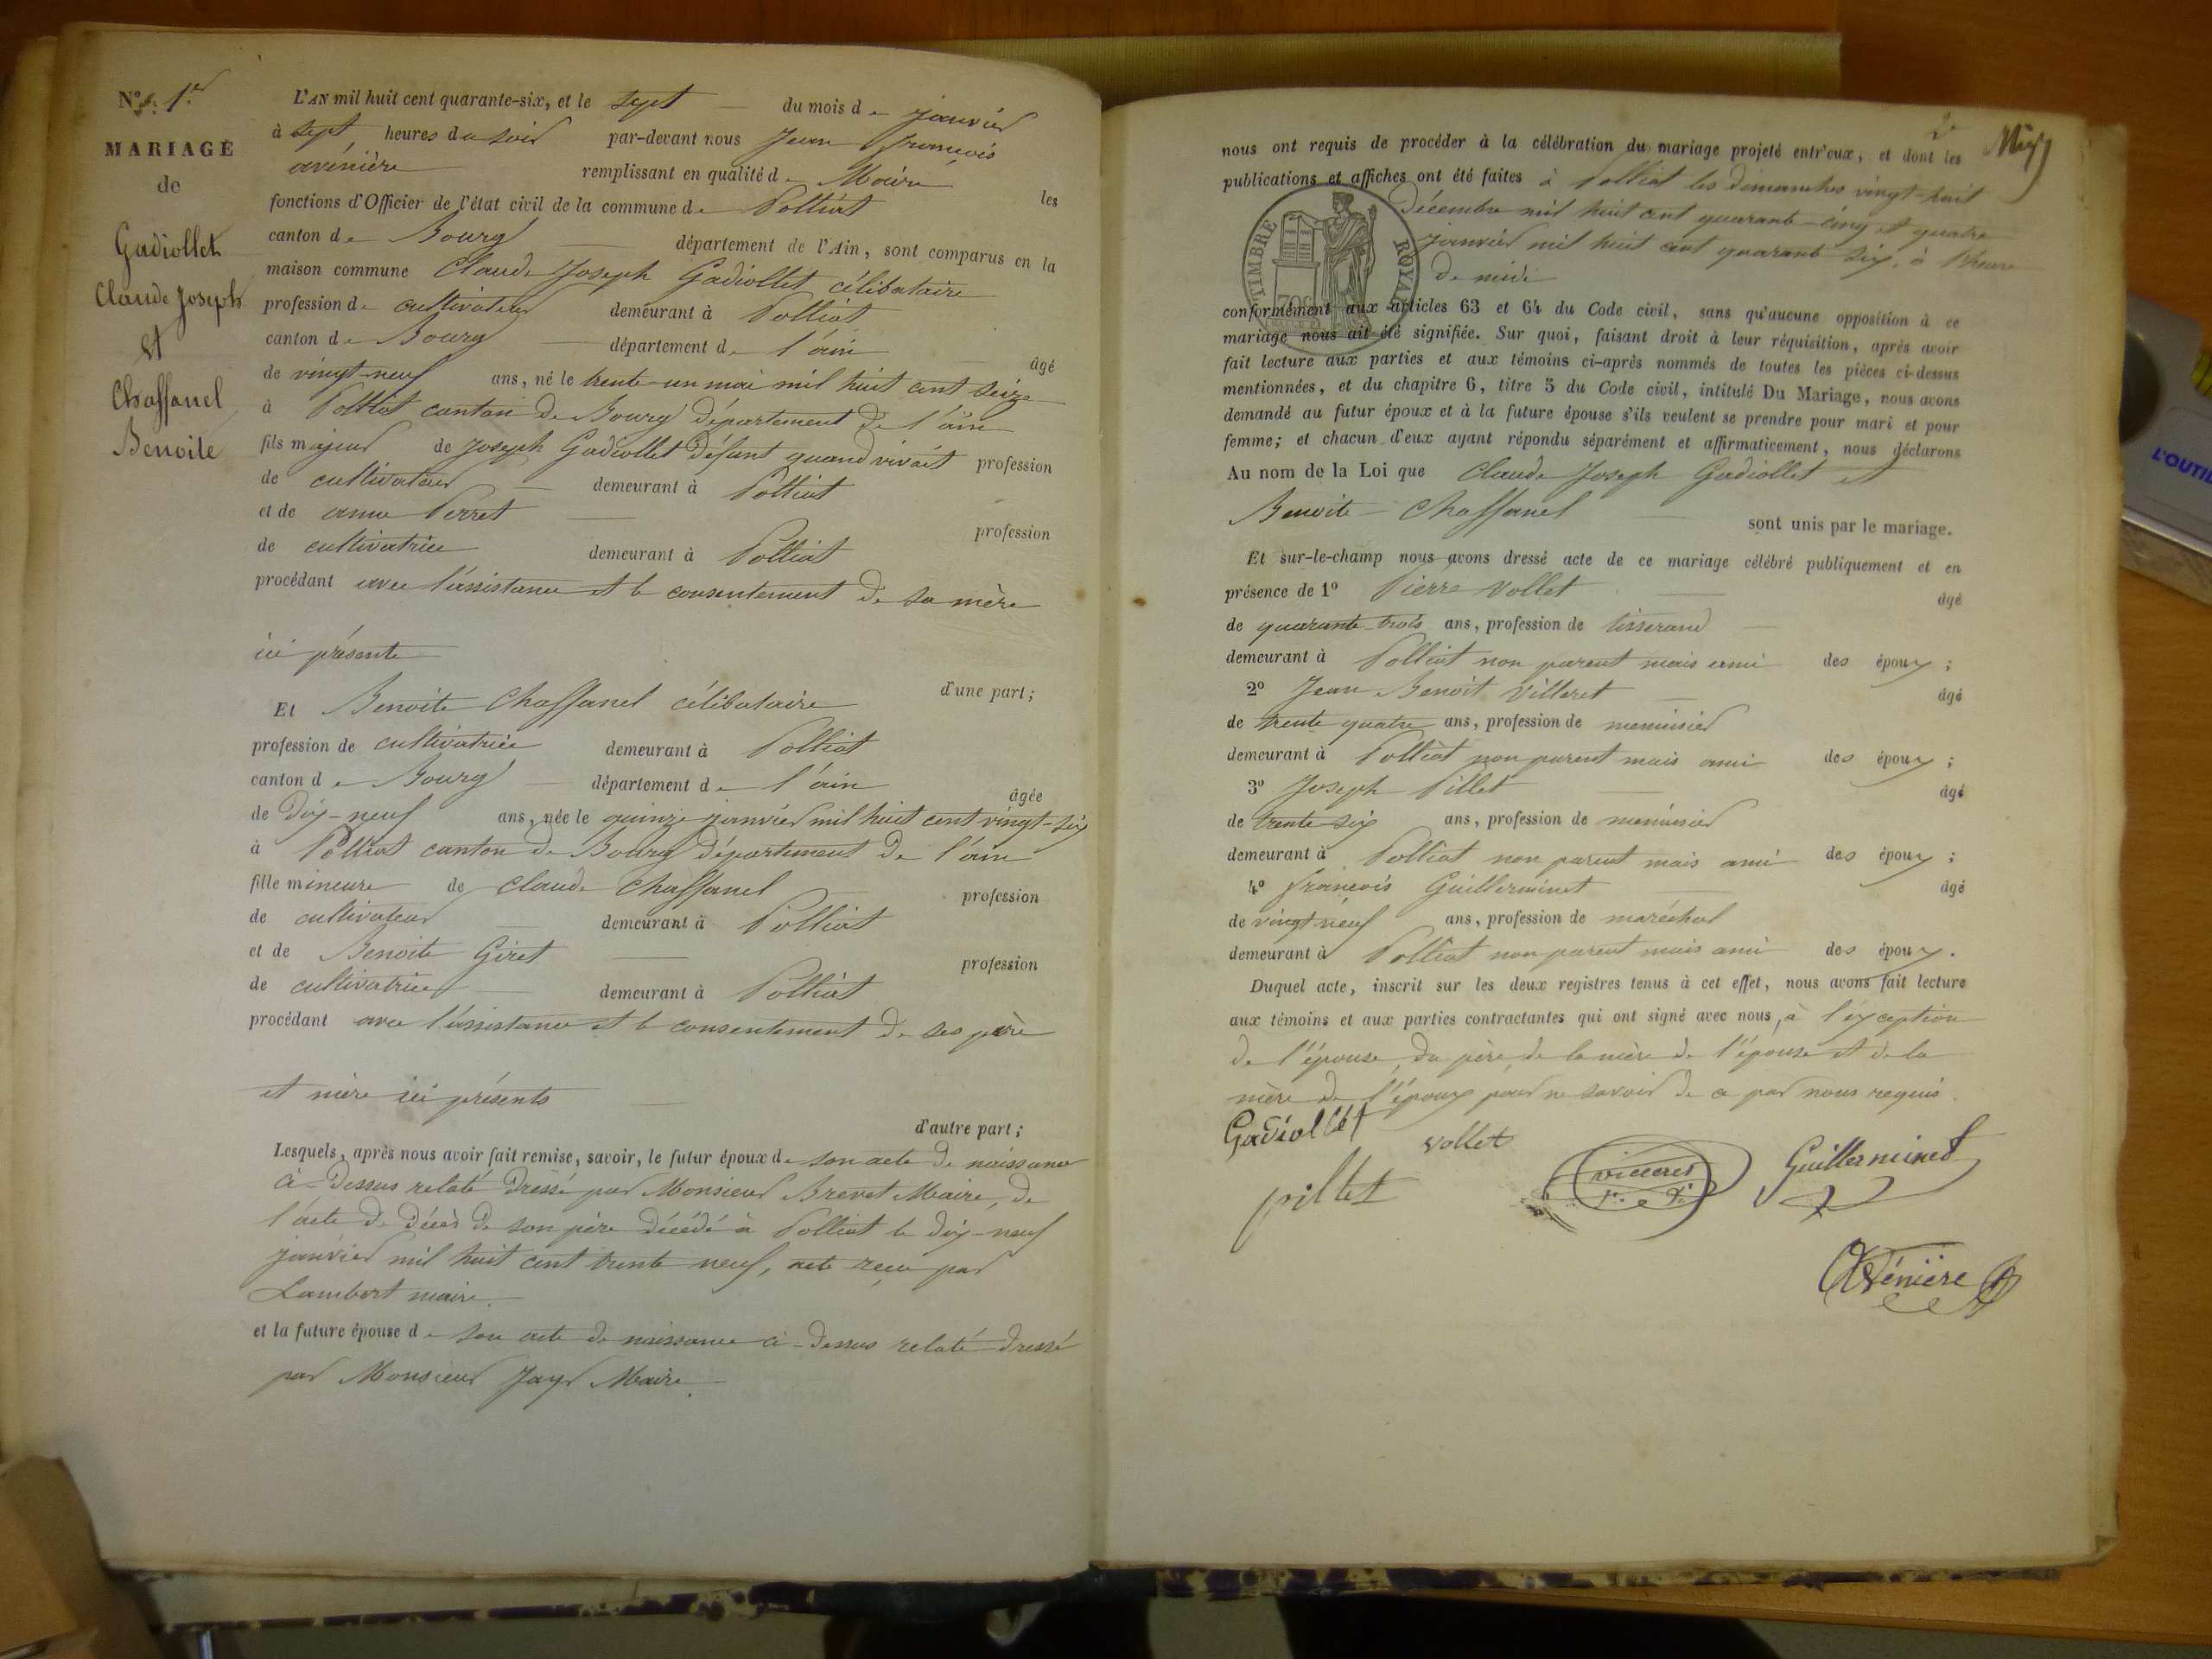 N° 1er
MARIAGE
de
Gadiollet
Claude Joseph
et
Chaffanel
Benoite
L'AN mil huit cent quarante-six, et le sept du mois de janvier
à sept heures du soir par-devant nous Jean françois
avénière remplissant en qualité de Maire les
fonctions d'Officier de l'état civil de la commune de Polliat
canton de Bourg département de l'Ain, sont comparus en la
maison commune Claude Joseph Gadiollet célibataire
profession de cultivateur demeurant à Polliat
canton de Bourg département de l'ain âgé
de vingt-neuf ans, né le trente-un mai mil huit cent seize
à Polliat canton de Bourg département de l'ain
fils majeur de Joseph Gadiollet défunt quand vivait profession
de cultivateur demeurant à Polliat
et de anne Perret profession
de cultivatrice demeurant à Polliat
procédant avec l'assistance et le consentement de sa mère
ici présente
d'une part;
Et Benoite Chaffanel célibataire
profession de cultivatrice demeurant à Polliat
canton de Bourg département de l'ain âgée
de dix-neuf ans, née le quinze janvier mil huit cent vingt-six
à Polliat canton de Bourg département de l'ain
fille mineure de Claude Chaffanel profession
de cultivateur demeurant à Polliat
et de Benoite Giret profession
de cultivatrice demeurant à Polliat
procédant avec l'assistance et le consentement de ses père
et mère ici présents
d'autre part;
Lesquels, après nous avoir fait remise, savoir, le futur époux de son acte de naissance
ci-dessus relaté dressé par Monsieur Brevet Maire, de
l'acte de décès de son père décédé à Polliat le dix-neuf
janvier mil huit cent trente neuf, acte reçu par
Lambert maire.
et la future épouse de son acte de naissance ci-dessus relaté dressé
par Monsieur Jayr Maire.
2
nous ont requis de procéder à la célébration du mariage projeté entr'eux, et dont les
publications et affiches ont été faites à Polliat les dimanches vingt-huit
décembre mil huit cent quarante-cinq et quatre
janvier mil huit cent quarante six, à l'heure
de midi
TIMBRE ROYAL
70c
conformément aux articles 63 et 64 du Code civil, sans qu'aucune opposition à ce
mariage nous ait été signifiée. Sur quoi, faisant droit à leur réquisition, après avoir
fait lecture aux parties et aux témoins ci-après nommés de toutes les pièces ci-dessus
mentionnées, et du chapitre 6, titre 5 du Code civil, intitulé Du Mariage, nous avons
demandé au futur époux et à la future épouse s'ils veulent se prendre pour mari et pour
femme; et chacun d'eux ayant répondu séparément et affirmativement, nous déclarons
Au nom de la Loi que Claude Joseph Gadiollet et
Benoite Chaffanel sont unis par le mariage.
Et sur-le-champ nous avons dressé acte de ce mariage célébré publiquement et en
présence de 1° Pierre Vollet âgé
de quarante-trois ans, profession de tisserand
demeurant à Polliat non parent mais ami des époux;
2° Jean Benoit Villeret âgé
de trente quatre ans, profession de menuisier
demeurant à Polliat non parent mais ami des époux;
3° Joseph Pillet âgé
de trente-six ans, profession de menuisier
demeurant à Polliat non parent mais ami des époux;
4° françois Guillerminet âgé
de vingt-neuf ans, profession de maréchal
demeurant à Polliat non parent mais ami des époux.
Duquel acte, inscrit sur les deux registres tenus à cet effet, nous avons fait lecture
aux témoins et aux parties contractantes qui ont signé avec nous, à l'exception
de l'épouse, du père, de la mère de l'épouse et de la
mère de l'époux pour ne savoir de ce par nous requis.
Gadiollet
vollet
pillet
Guillerminet
Avénière
L'OUTIL